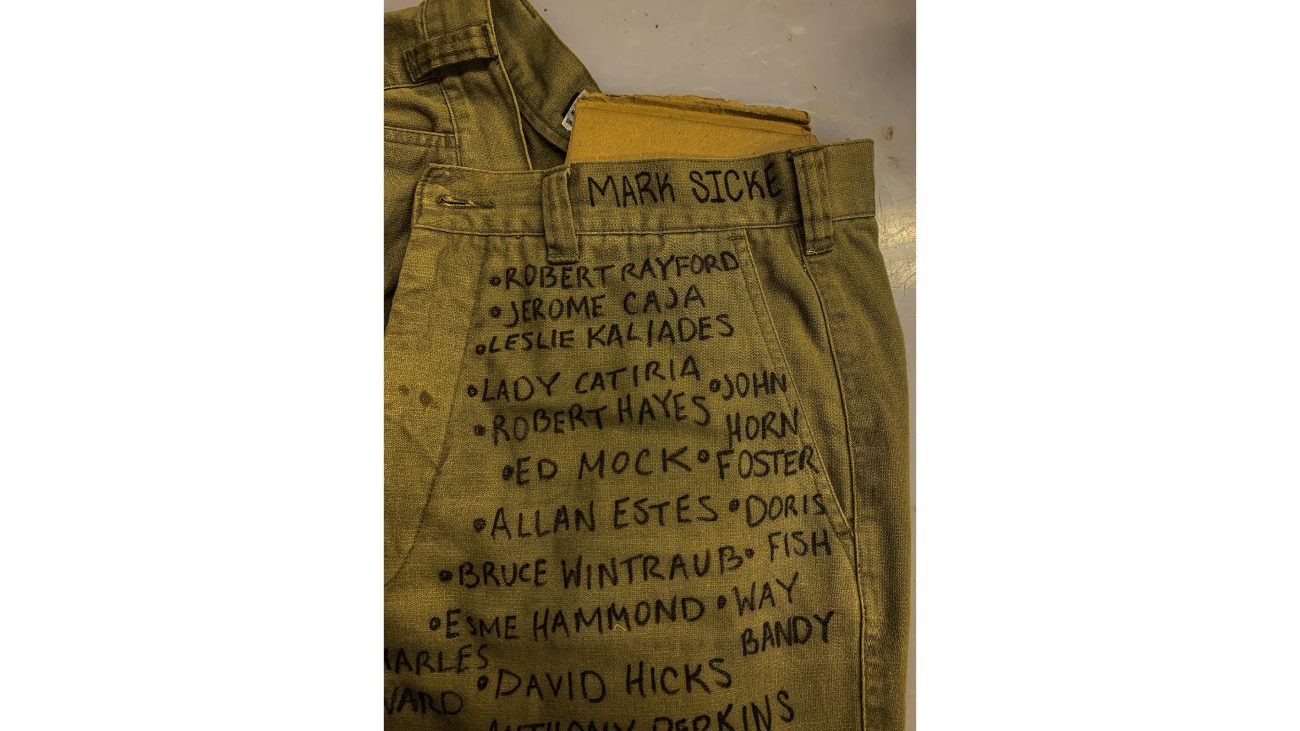 MARK SICKE
•ROBERT RAYFORD
•JEROME CAJA
•LESLIE KALIADES
•LADY CATIRIA •JOHN
•ROBERT HAYES HORN
•ED MOCK •FOSTER
•ALLAN ESTES •DORIS
•BRUCE WINTRAUB• FISH
•ESME HAMMOND •WAY
BANDY
HARLES
•DAVID HICKS
WARD
ANTHONY PERKINS